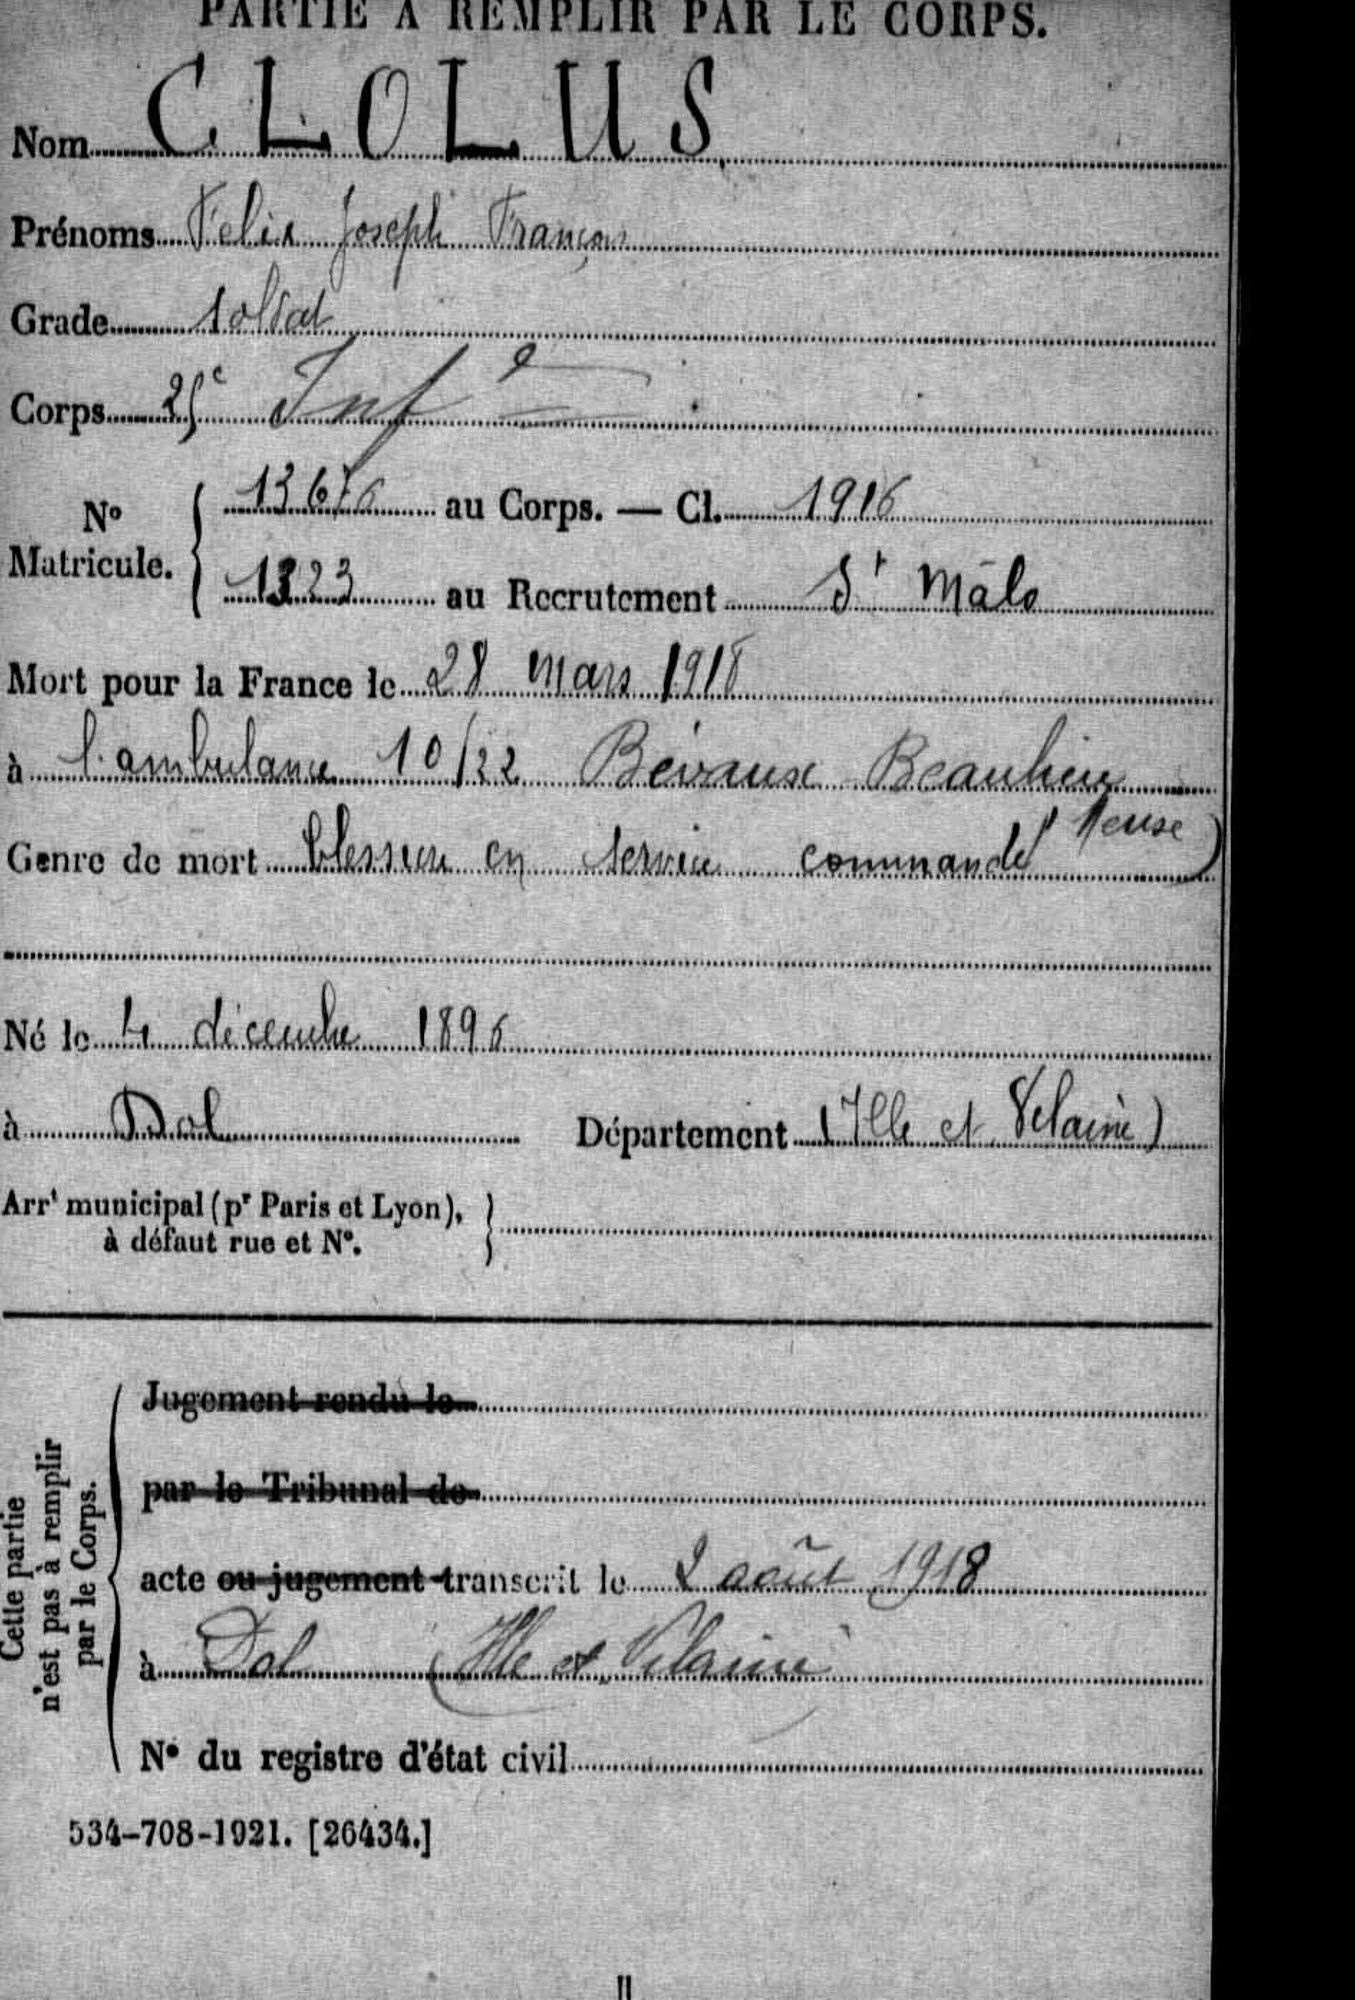 PARTIE A REMPLIR PAR LE CORPS.
Nom CLOLUS
Prénoms Felix Joseph François
Grade soldat
Corps 25e Inf ie
No Matricule. { 13676 au Corps. — Cl. 1916
1323 au Recrutement St Mâlo
Mort pour la France le 28 mars 1918
à l'ambulance 10/22 Bévaux Beaulieu
Meuse)
Genre de mort blessure en service commandé
Né le 4 décembre 1896
à Dol Département (Ille et Vilaine)
Arrt municipal (pr Paris et Lyon), }
à défaut rue et No.
Cette partie
n'est pas à remplir
par le Corps.
Jugement rendu le
par le Tribunal de
acte ou jugement transcrit le 2 août 1918
à Dol (Ille et Vilaine
No du registre d'état civil
534-708-1921. [26434.]